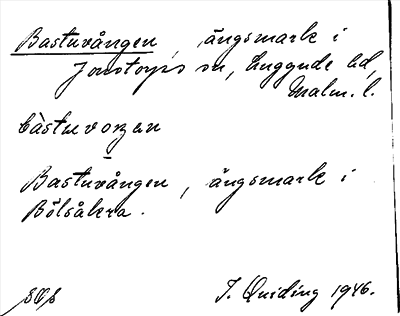 Bastuvången, ängsmark i
Jonstorps sn, Luggude hd,
Malm. l.
bàstuvoŋən
Bastuvången, ängsmark i
Bölsåkra.
J. Quiding 1946.